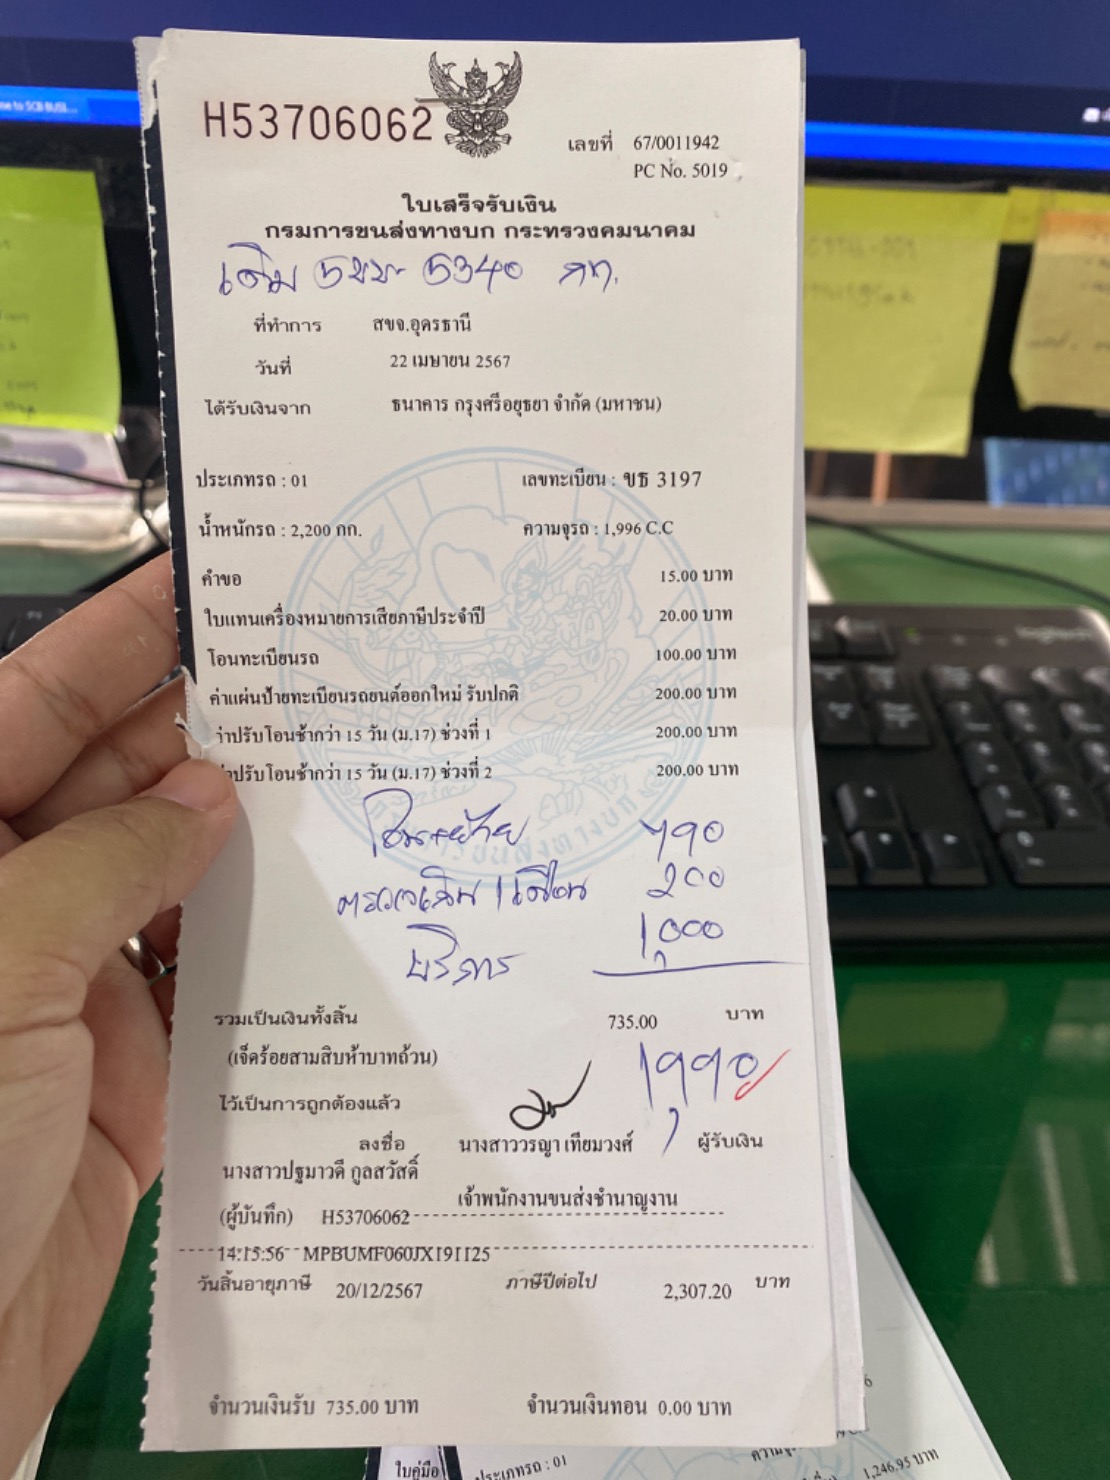 H53706062
เลขที่ 67/0011942
PC No. 5019
ใบเสร็จรับเงิน
กรมการขนส่งทางบก กระทรวงคมนาคม
เดิม 5ขข 5340 กท.
ที่ทำการ สขจ.อุดรธานี
วันที่ 22 เมษายน 2567
ได้รับเงินจาก ธนาคาร กรุงศรีอยุธยา จำกัด (มหาชน)
ประเภทรถ : 01 เลขทะเบียน : ขธ 3197
น้ำหนักรถ : 2,200 กก. ความจุรถ : 1,996 C.C
คำขอ 15.00 บาท
ใบแทนเครื่องหมายการเสียภาษีประจำปี 20.00 บาท
โอนทะเบียนรถ 100.00 บาท
ค่าแผ่นป้ายทะเบียนรถยนต์ออกใหม่ รับปกติ 200.00 บาท
ค่าปรับโอนช้ากว่า 15 วัน (ม.17) ช่วงที่ 1 200.00 บาท
ค่าปรับโอนช้ากว่า 15 วัน (ม.17) ช่วงที่ 2 200.00 บาท
โอน+ย้าย 790
ตรวจเกิน 1 เดือน 200
บริการ 1,000
รวมเป็นเงินทั้งสิ้น 735.00 บาท
(เจ็ดร้อยสามสิบห้าบาทถ้วน) 1,990
ไว้เป็นการถูกต้องแล้ว
ลงชื่อ นางสาววรญา เทียมวงศ์ ผู้รับเงิน
นางสาวปฐมาวดี กูลสวัสดิ์
เจ้าพนักงานขนส่งชำนาญงาน
(ผู้บันทึก) H53706062
14:15:56 MPBUMF060JX191125
วันสิ้นอายุภาษี 20/12/2567 ภาษีปีต่อไป 2,307.20 บาท
จำนวนเงินรับ 735.00 บาท จำนวนเงินทอน 0.00 บาท
ใบคู่มือ ประเภทรถ : 01
1,246.95 บาท
logitech